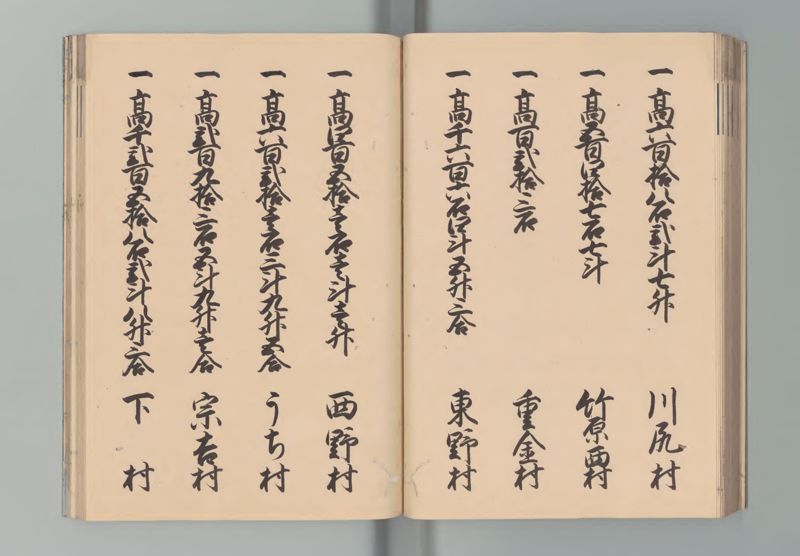 一 高六百拾八石弐斗七升 川尻村
一 高五百四拾七石七斗 竹原西村
一 高百弐拾二石 重金村
一 高千六百六石四斗五升二合 東野村
一 高四百五拾壱石壱斗壱升 西野村
一 高六百弐拾壱石三斗九升五合 うち村
一 高弐百九拾二石五斗九升壱合 宗吉村
一 高千弐百五拾八石弐斗八升二合 下村